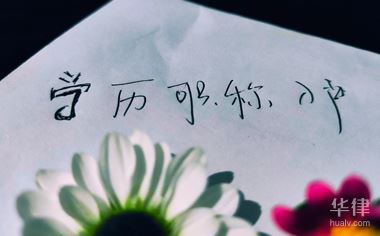 学历职称入户
华律
hualv.com